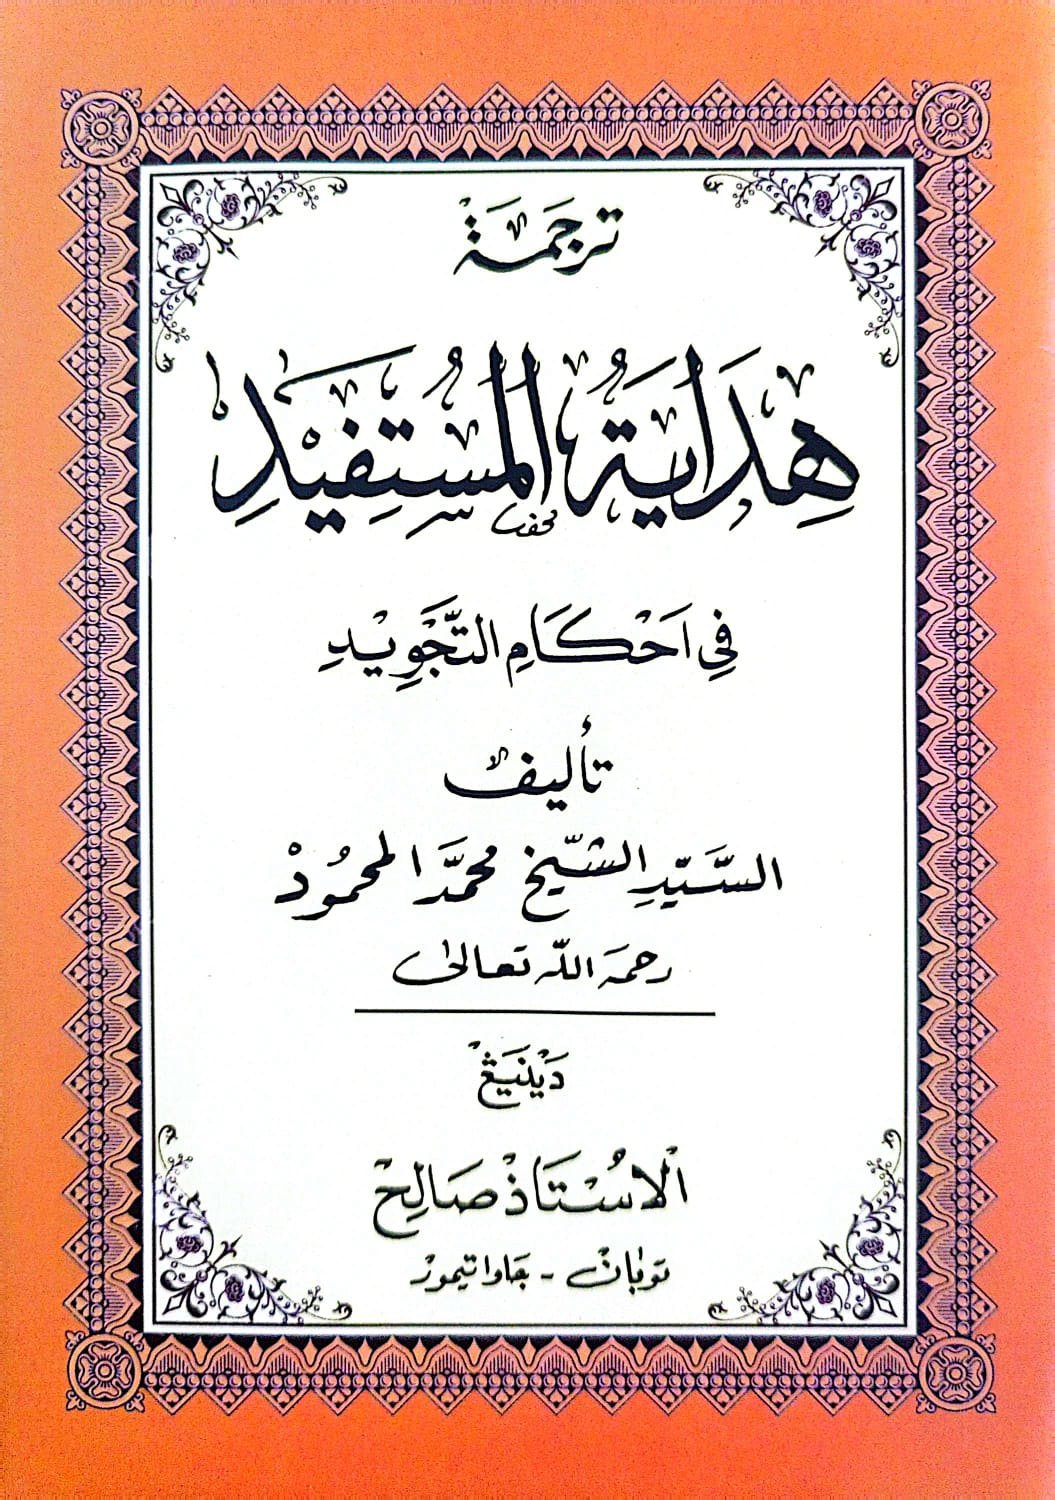 تَرْجَمَةْ
هِدَايَةُ الْمُسْتَفِيْدِ
فِي اَحْكَامِ التَّجْوِيْدِ
تأليف
السَّيِّدِ الشَّيْخ محمَّد المحمُودْ
رحمَهُ اللّه تعَالىٰ
دَيْنَيْڠْ
الْاُسْتَاذْ صَالِحْ
توبانْ - جَاوا تيمورْ